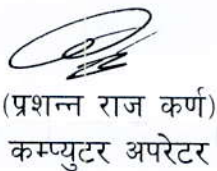 (प्रशान्न राज कर्ण)
कम्प्युटर अपरेटर